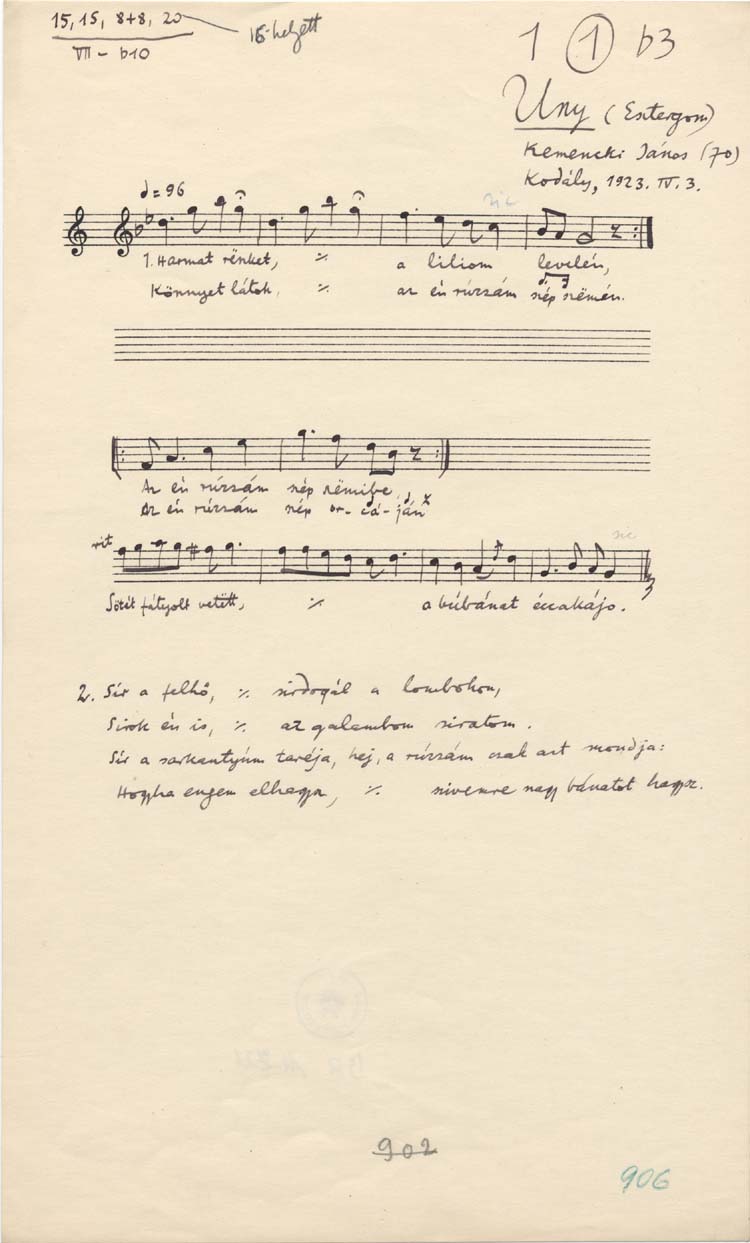 15, 15, 8+8, 20 15-helyett
VII – b10
1 1 b3
Uny (Esztergom)
Kemencki János (70)
Kodály, 1923. IV. 3.
= 96
sic
1. Harmat rënket, ⁒ a liliom levelén,
Könnyet látok, ⁒ az én rúzsám szép szëmén.
Az én rúzsám szép szëmibe,
Az én rúzsám szép or-cá-ján
rit
sic
Sötét fátyolt vetëtt, ⁒ a búbánat éccakájo.
2. Sír a felhő, ⁒ sirdogál a lombokon,
Sirok én is, ⁒ az galambom siratom.
Sír a sarkantyúm taréja, hej, a rúzsám csak azt mondja:
Hogyha engem elhagysz, ⁒ szivemre nagy bánatot hagysz.
902
906